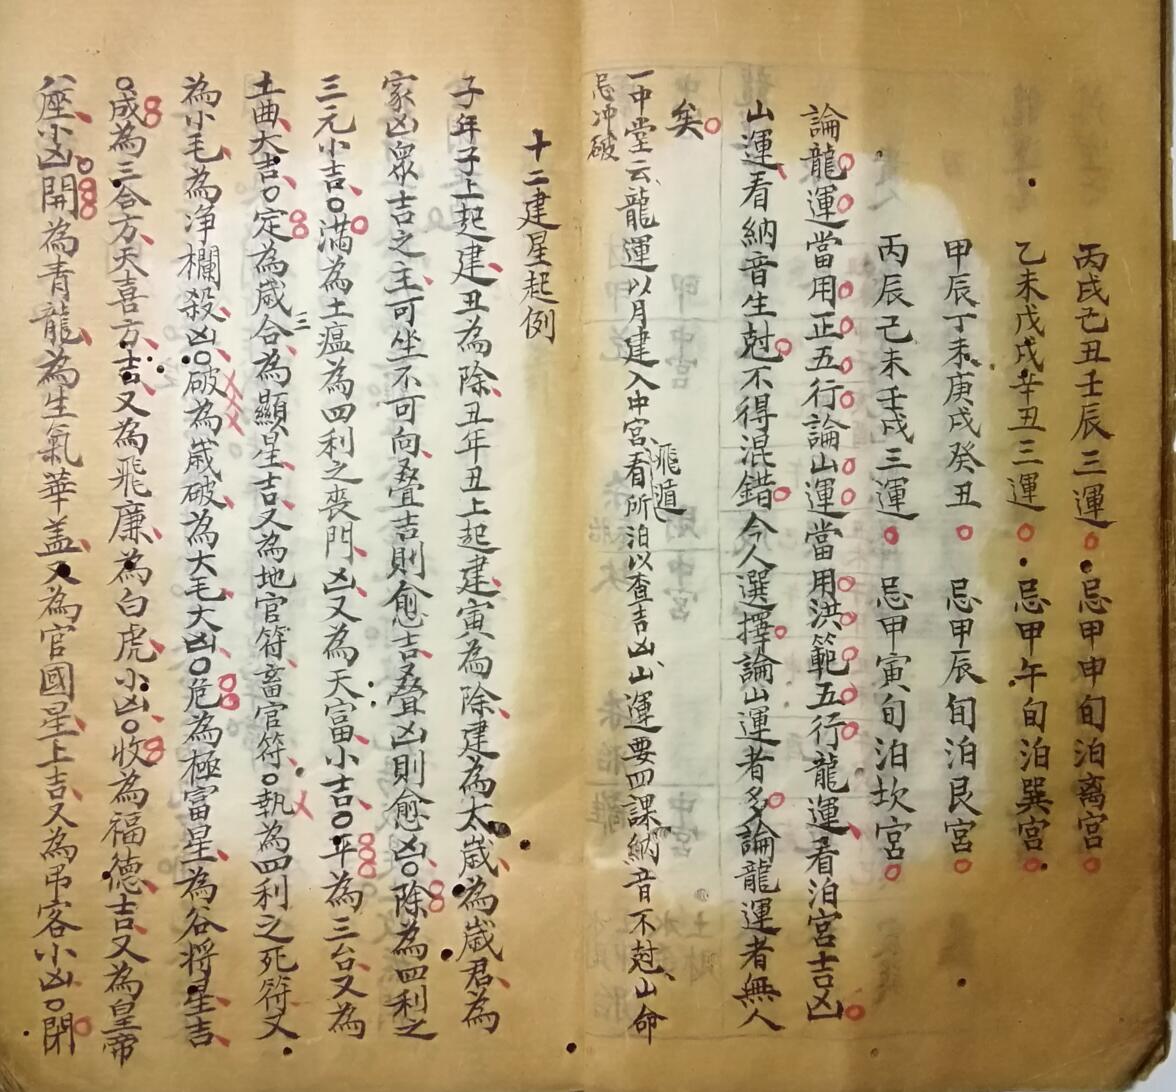 丙戌己丑壬辰三運 忌甲申旬泊离宮
乙未戊戌辛丑三運 忌甲午旬泊巽宮
甲辰丁未庚戌癸丑 忌甲辰旬泊艮宮
丙辰己未壬戌三運 忌甲寅旬泊坎宮
論龍運當用正五行論山運當用洪範五行龍運看泊宮吉凶
山運看納音生尅不得混錯今人選擇論山運者多論龍運者無人
矣
一中堂云龍運以月建入中宮飛遁看所泊以查吉凶山運要四課納音不尅山命
忌冲破
十二建星起例
子年子上起建丑為除丑年丑上起建寅為除建為太歲為歲君為
家凶衆吉之主可坐不可向叠吉則愈吉叠凶則愈凶除為四利之
三元小吉滿為土瘟為四利之喪門凶又為天富小吉平為三台又為
土曲大吉定為歲三合為顯星吉又為地官符畜官符執為四利之死符又
為小毛為净欄殺凶破為歲破為大毛大凶危為極富星為谷將星吉
成為三合方天喜方吉又為飛廉為白虎小凶收為福德吉又為皇帝
座小凶開為青龍為生氣華盖又為官國星上吉又為吊客小凶閉